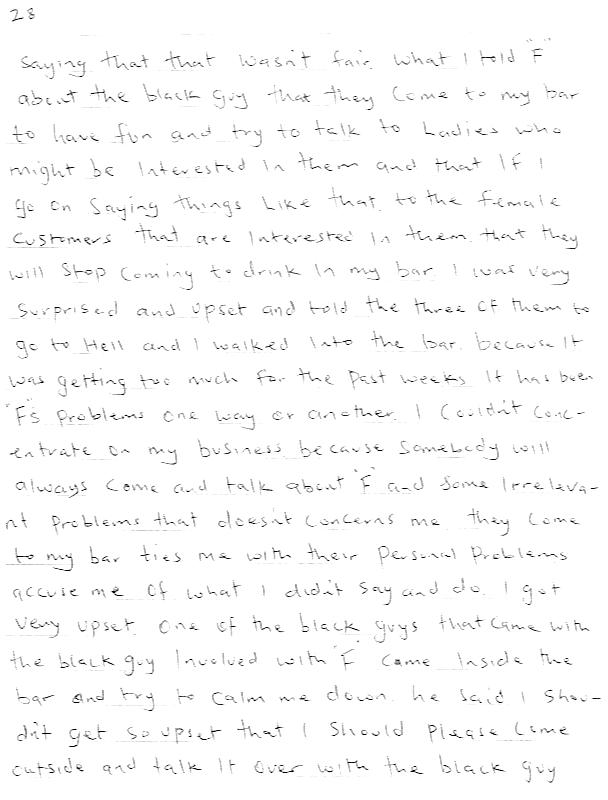 28
Saying that that wasn't fair what I told "F"
about the black guy that they come to my bar
to have fun and try to talk to Ladies who
might be Interested In them and that If I
go on Saying things Like that. to the female
customers that are Interested In them. that they
will stop coming to drink In my bar. I was very
surprised and upset and told the three of them to
go to Hell and I walked Into the bar. because It
was getting too much for the past weeks It has been
"F's problems one way or another. I Couldn't conc-
entrate on my business because somebody will
always come and talk about "F" and some Irreleva-
nt problems that doesn't concerns me. they come
to my bar ties me with their personal problems
accuse me of what I didn't say and do. I got
very upset. one of the black guys that came with
the black guy Involved with "F" came Inside the
bar and try to calm me down. he said I shou-
dn't get so upset that I should please come
outside and talk It over with the black guy